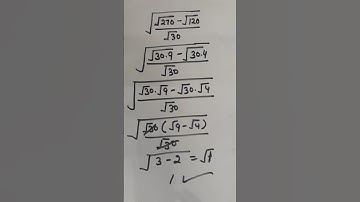 √((√270 − √120)/√30)
√((√30·9 − √30·4)/√30)
√((√30·√9 − √30·√4)/√30)
√((√30(√9 − √4))/√30)
√(3 − 2) = √1
1 ✓